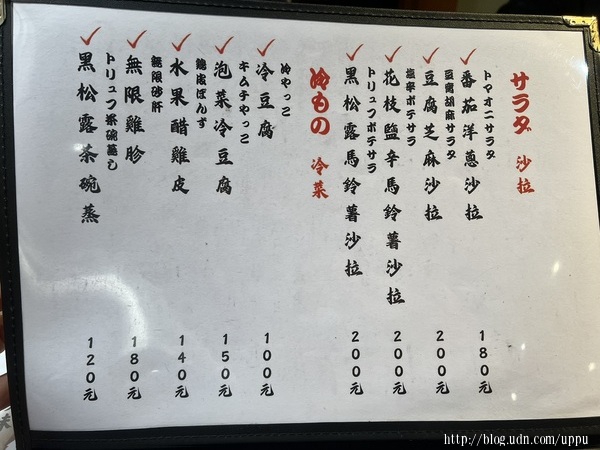 サラダ 沙拉
トマオニサラダ
番茄洋蔥沙拉 180元
豆腐胡麻サラダ
豆腐芝麻沙拉 200元
塩辛ポテサラ
花枝鹽辛馬鈴薯沙拉 200元
トリュフポテサラ
黑松露馬鈴薯沙拉 200元
冷もの 冷菜
冷やっこ
冷豆腐 100元
キムチやっこ
泡菜冷豆腐 150元
鶏皮ぽんず
水果醋雞皮 140元
無限砂肝
無限雞胗 180元
トリュフ茶碗蒸し
黑松露茶碗蒸 120元
http://blog.udn.com/uppu